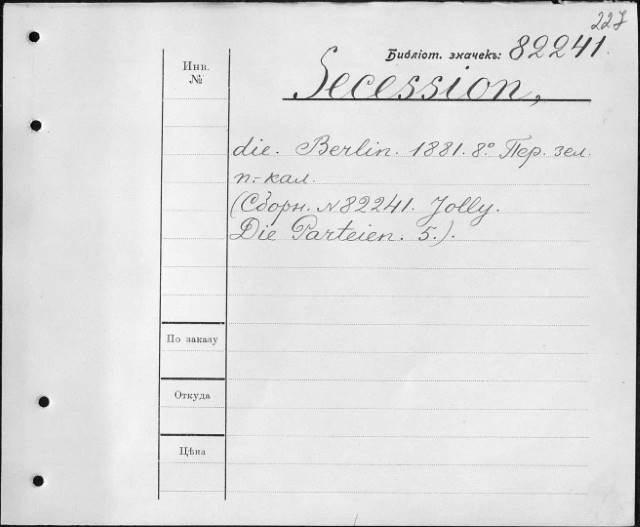 227
Библіот. значекъ: 82241.
Инв.
№
Secession,
die. Berlin. 1881. 8º Пер. зел.
п.-кал.
(Сборн. № 82241. Jolly.
Die Parteien. 5.).
По заказу
Откуда
Цѣна